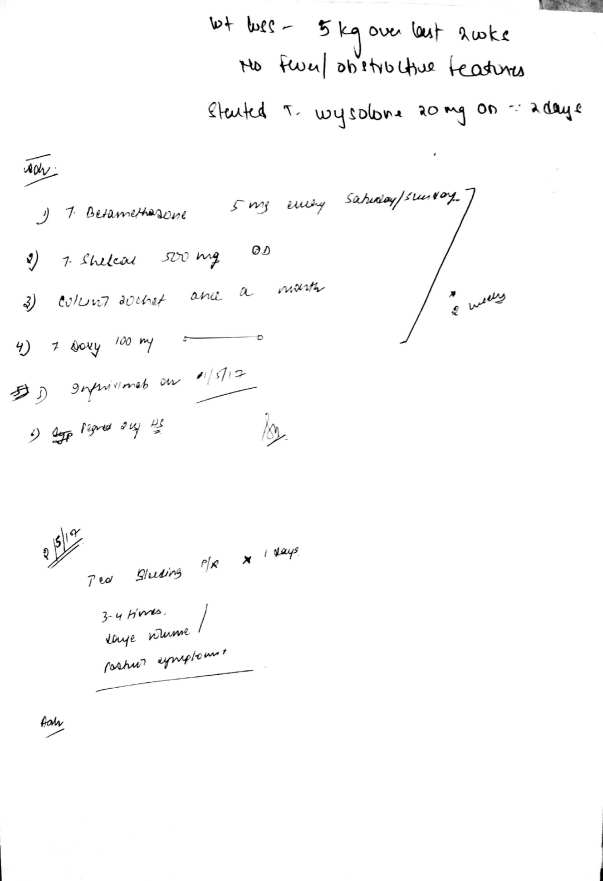 Wt loss - 5 kg over last 2 wks
No fever/ obstructive features
Started T. wysolone 20 mg OD 2 days
Adv:
1) T. Betamethasone 5 mg every Saturday/Sunday
2) T. Shelcal 500 mg OD
3) sachet once a month
2 weeks
4) T Doxy 100 mg
5) on /5/17
6) HS
2/5/17
Bleeding P/R x 1 days
3-4 times.
large volume
symptoms
Adv